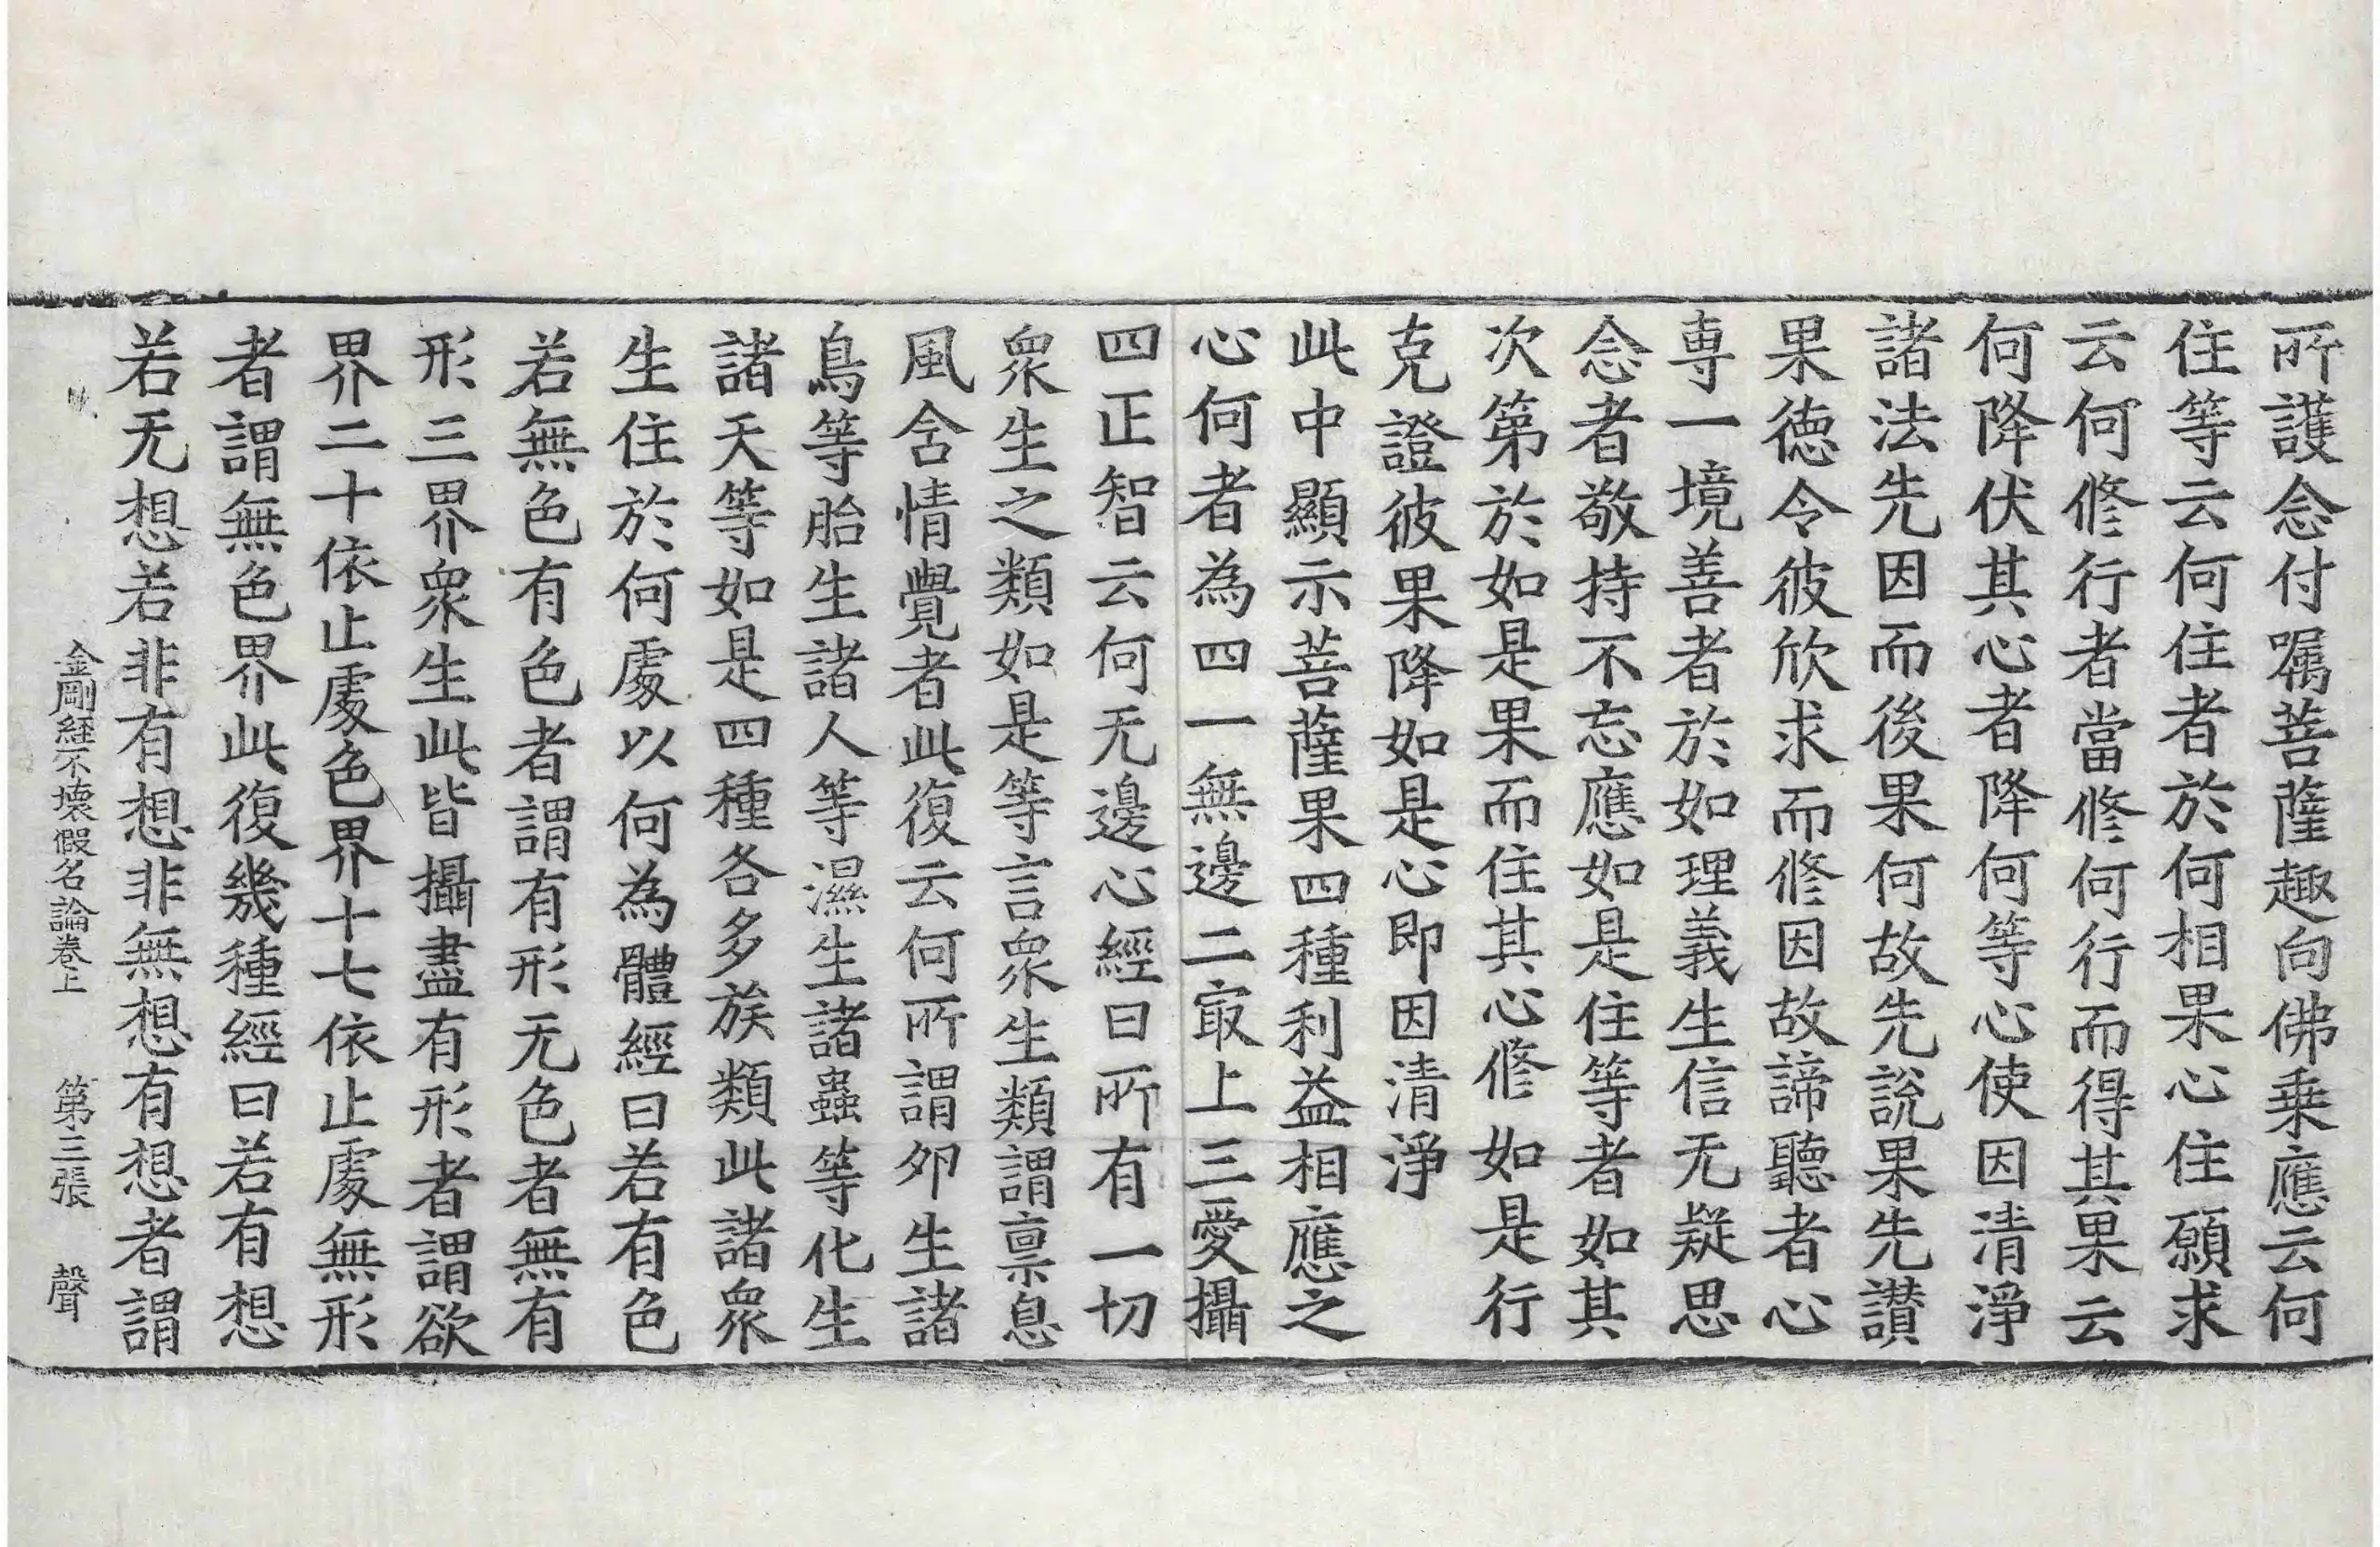 所護念付囑菩薩趣向佛乗應云何
住等云何住者於何相果心住願求
云何修行者當修何行而得其果云
何降伏其心者降何等心使因清淨
諸法先因而後果何故先說果先讃
果德令彼欣求而修因故諦聽者心
專一境善者於如理義生信无疑思
念者敬持不忘應如是住等者如其
次第於如是果而住其心修如是行
克證彼果降如是心即因清淨
此中顯示菩薩果四種利益相應之
心何者為四一無邊二㝡上三愛攝
四正智云何无邊心經曰所有一切
衆生之類如是等言衆生類謂禀息
風含情覺者此復云何所謂夘生諸
鳥等胎生諸人等濕生諸蟲等化生
諸天等如是四種各多族類此諸衆
生住於何處以何為體經曰若有色
若無色有色者謂有形无色者無有
形三界衆生此皆攝盡有形者謂欲
界二十依止處色界十七依止處無形
者謂無色界此復幾種經曰若有想
若无想若非有想非無想有想者謂
金剛經不壞假名論卷上　第三張　聲